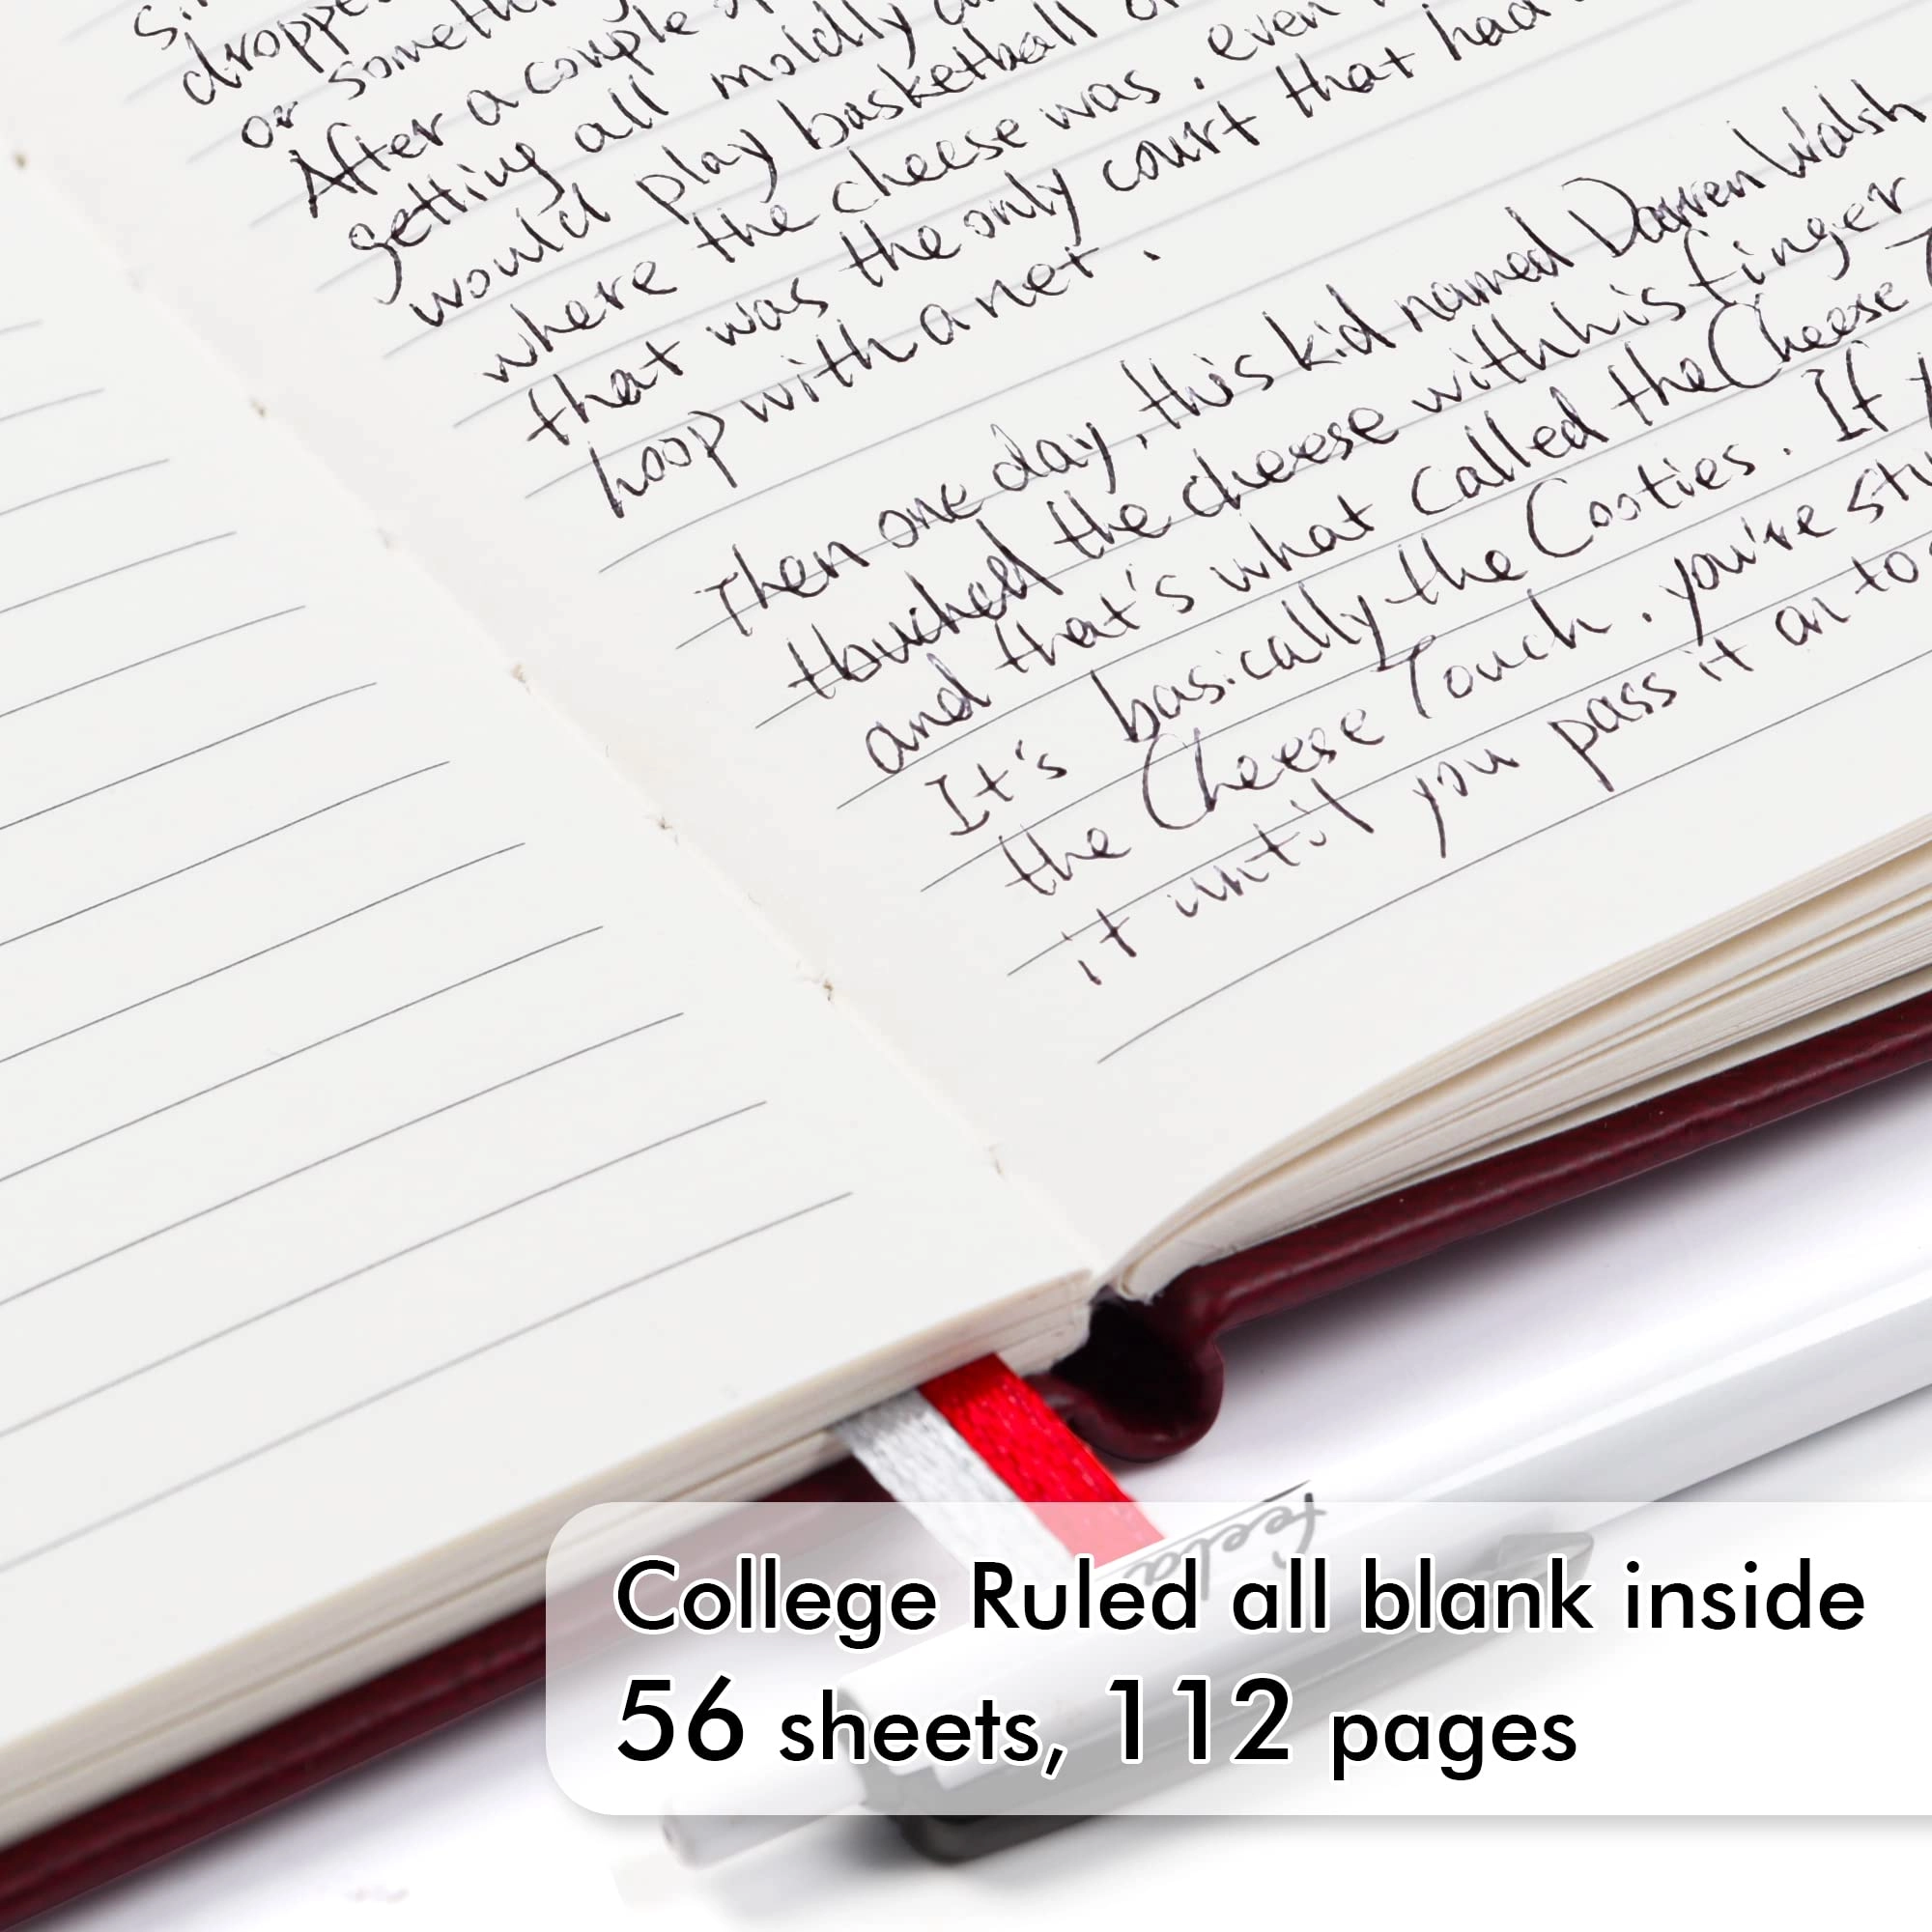 dropped
or someth
After a couple
getting all moldly
would play basketball
where the cheese was, even
that was the only court that had
hoop with a net.
Then one day, this kid named Darren Walsh
touched the cheese with his finger
and that's what called the Cheese
It's basically the Cooties. If
the Cheese Touch, you're stu
it until you pass it on to
feela
College Ruled all blank inside
56 sheets, 112 pages